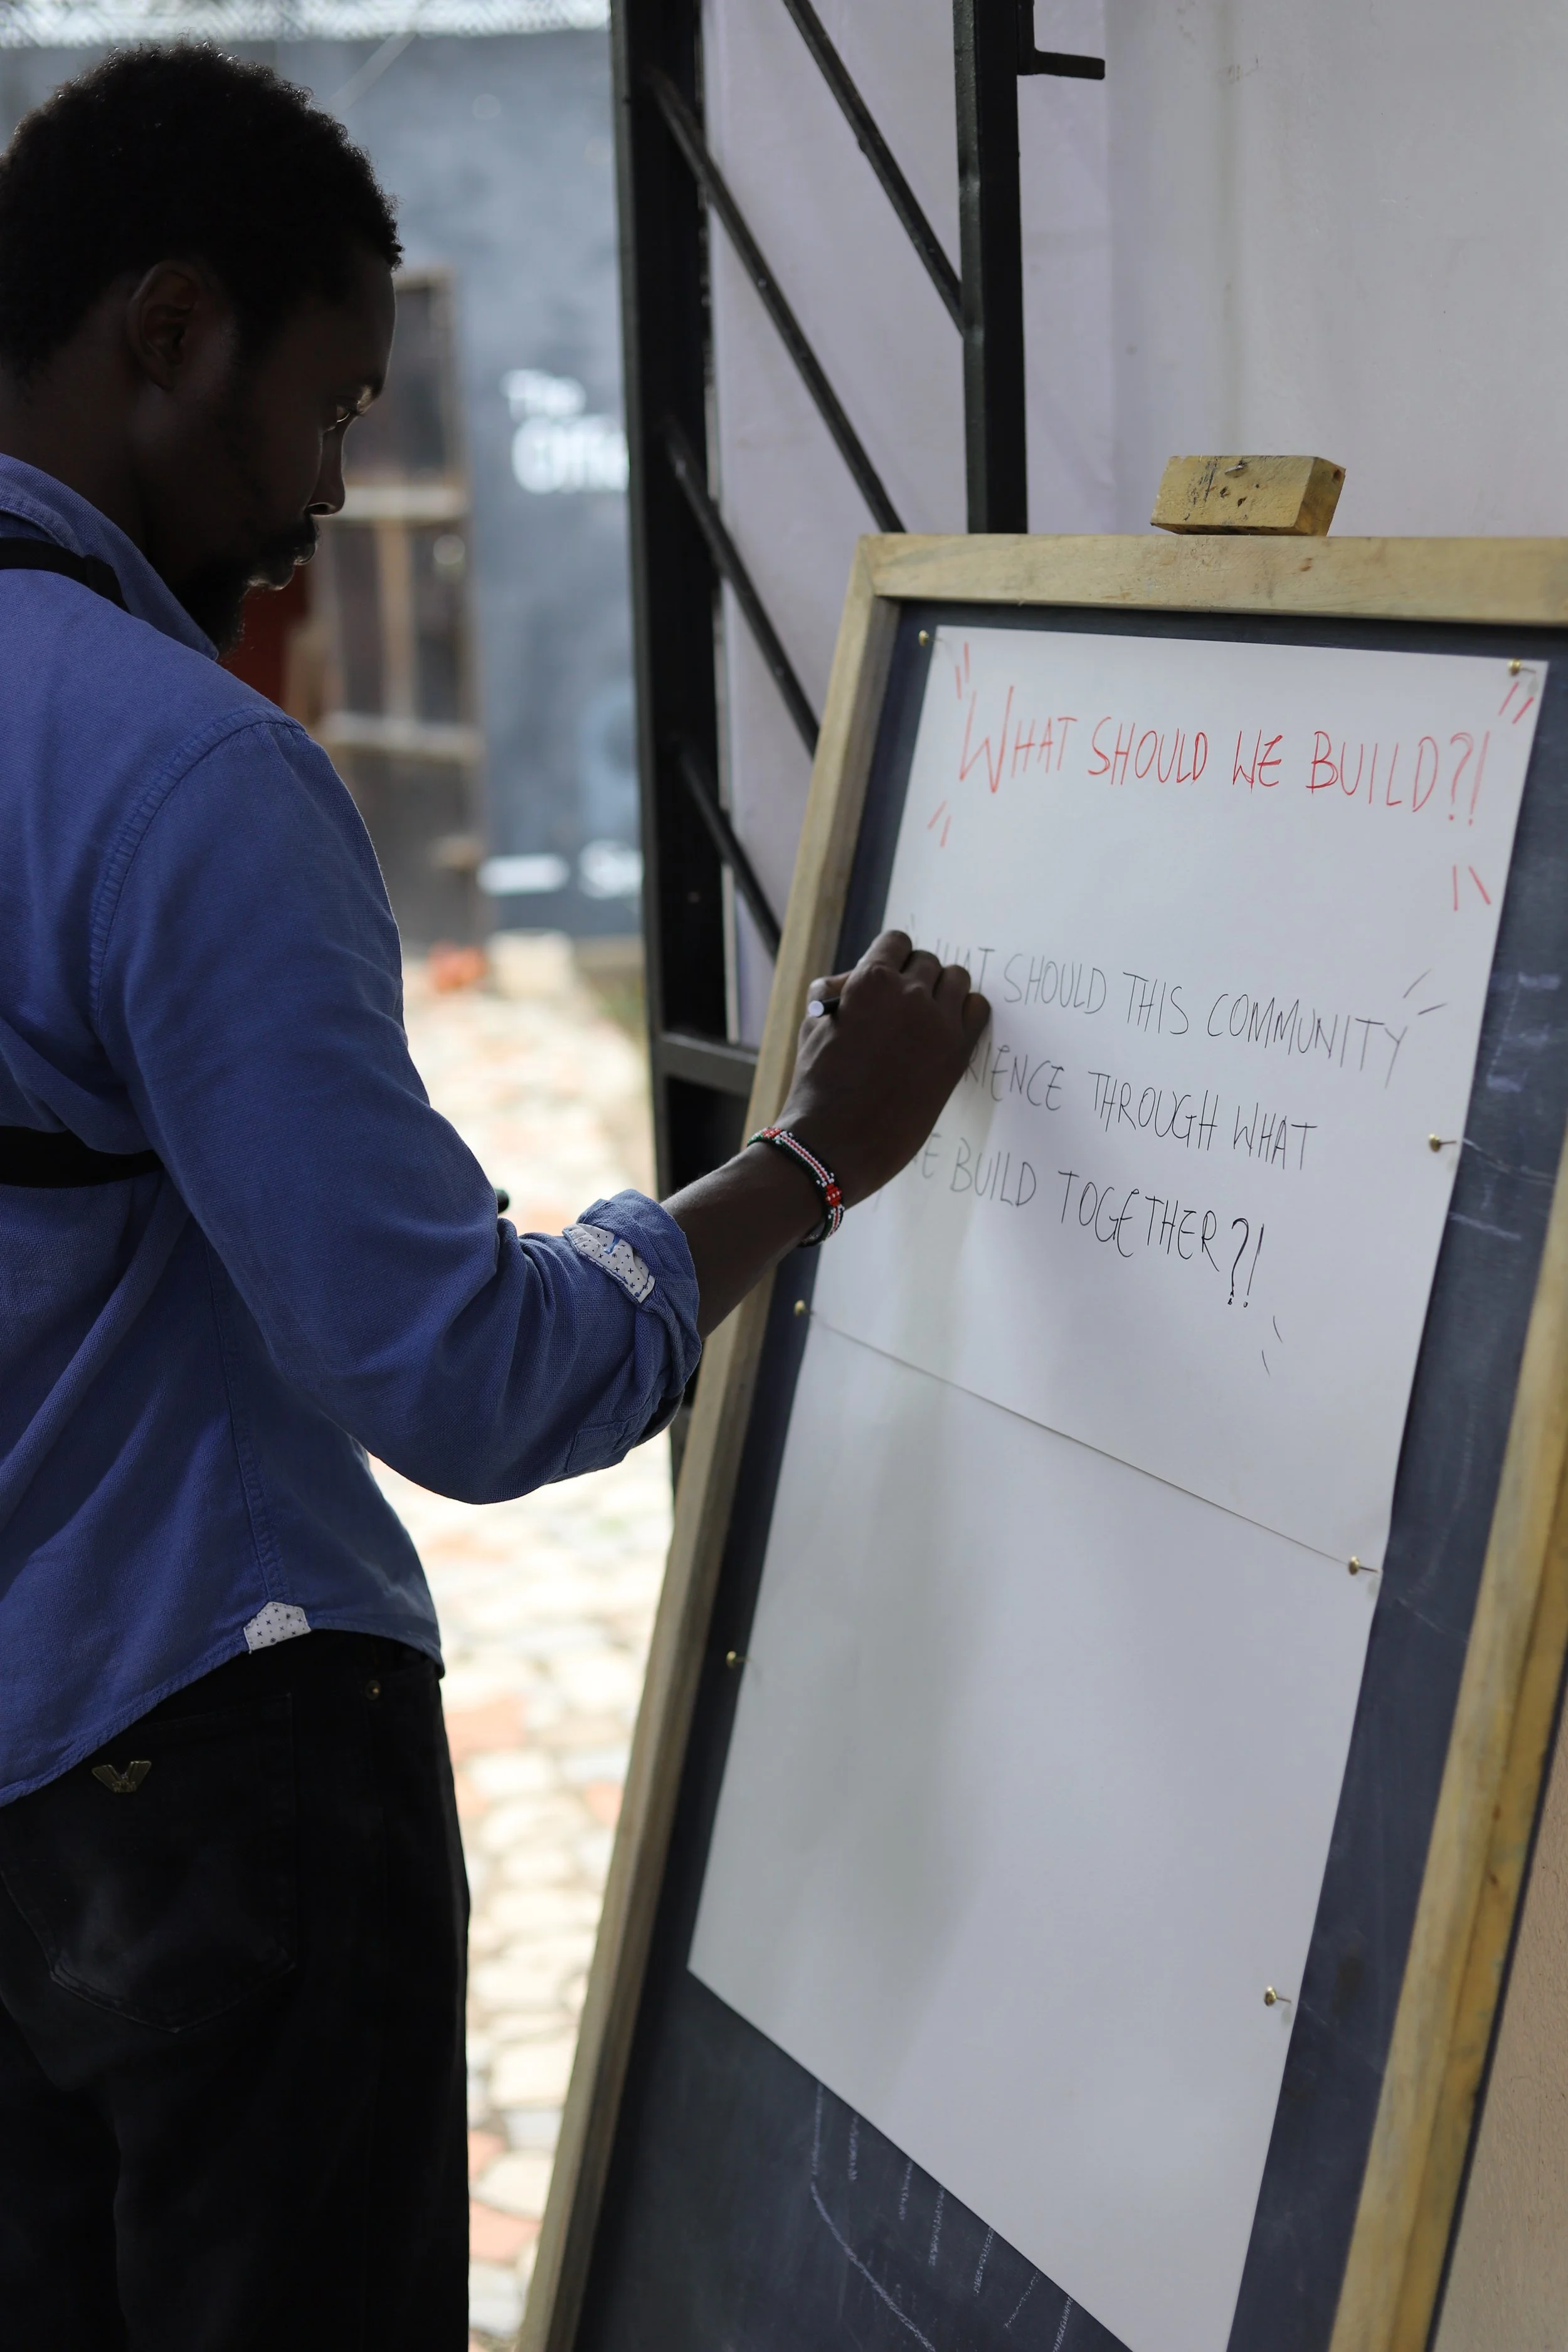 The
WHAT SHOULD WE BUILD?!
SHOULD THIS COMMUNITY
THROUGH WHAT
BUILD TOGETHER?!